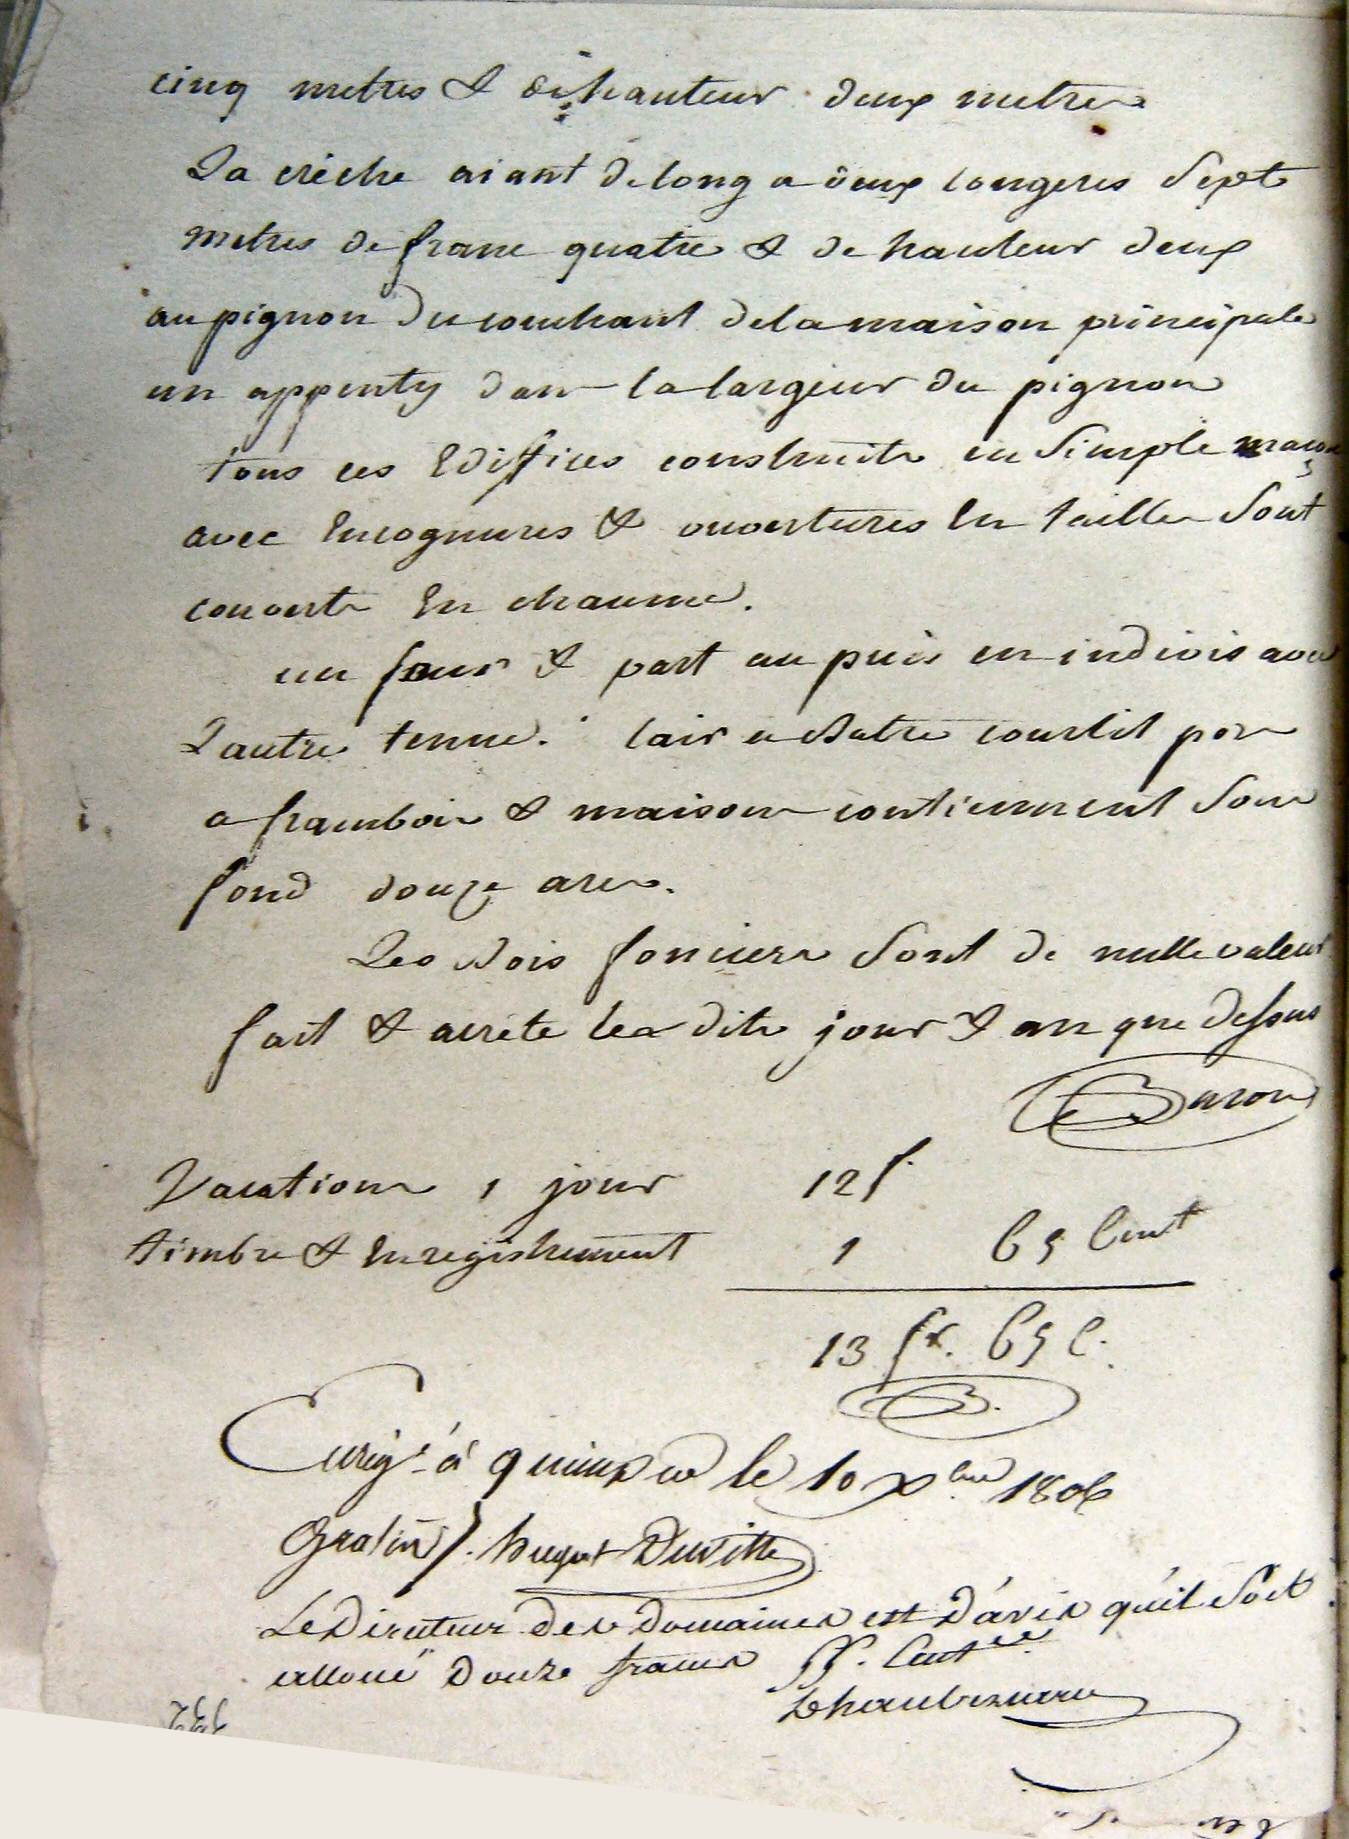 cinq metres & de hauteur deux metres
La crèche aiant de long a deux longeres Sept
metres de franc quatre & de hauteur deux
au pignon du couchant de la maison principale
un appenty dans la largeur du pignon
tous ces Ediffices construits en Simple maçon
avec Encognures & ouvertures En taille Sont
couverts En chaume.
un four & part au puis en indivis avec
L'autre tenue. l'air a Batre courtil por
a framboir & maison contiennent Sous
fond douze ares.
Les Bois fonciers Sont de nulle valeur
fait & arrete les dits jour & an que dessus
Baron
Vacations 1 jour 12 f.
timbre & Enregistrement 1 65 Cent
13 fr. 65 C.
B.
Enrég.é à quimper le 10 Xbre 1806
Gratis
Le Directeur des Domaines est D'avis qu'il Soit
alloué Douze francs